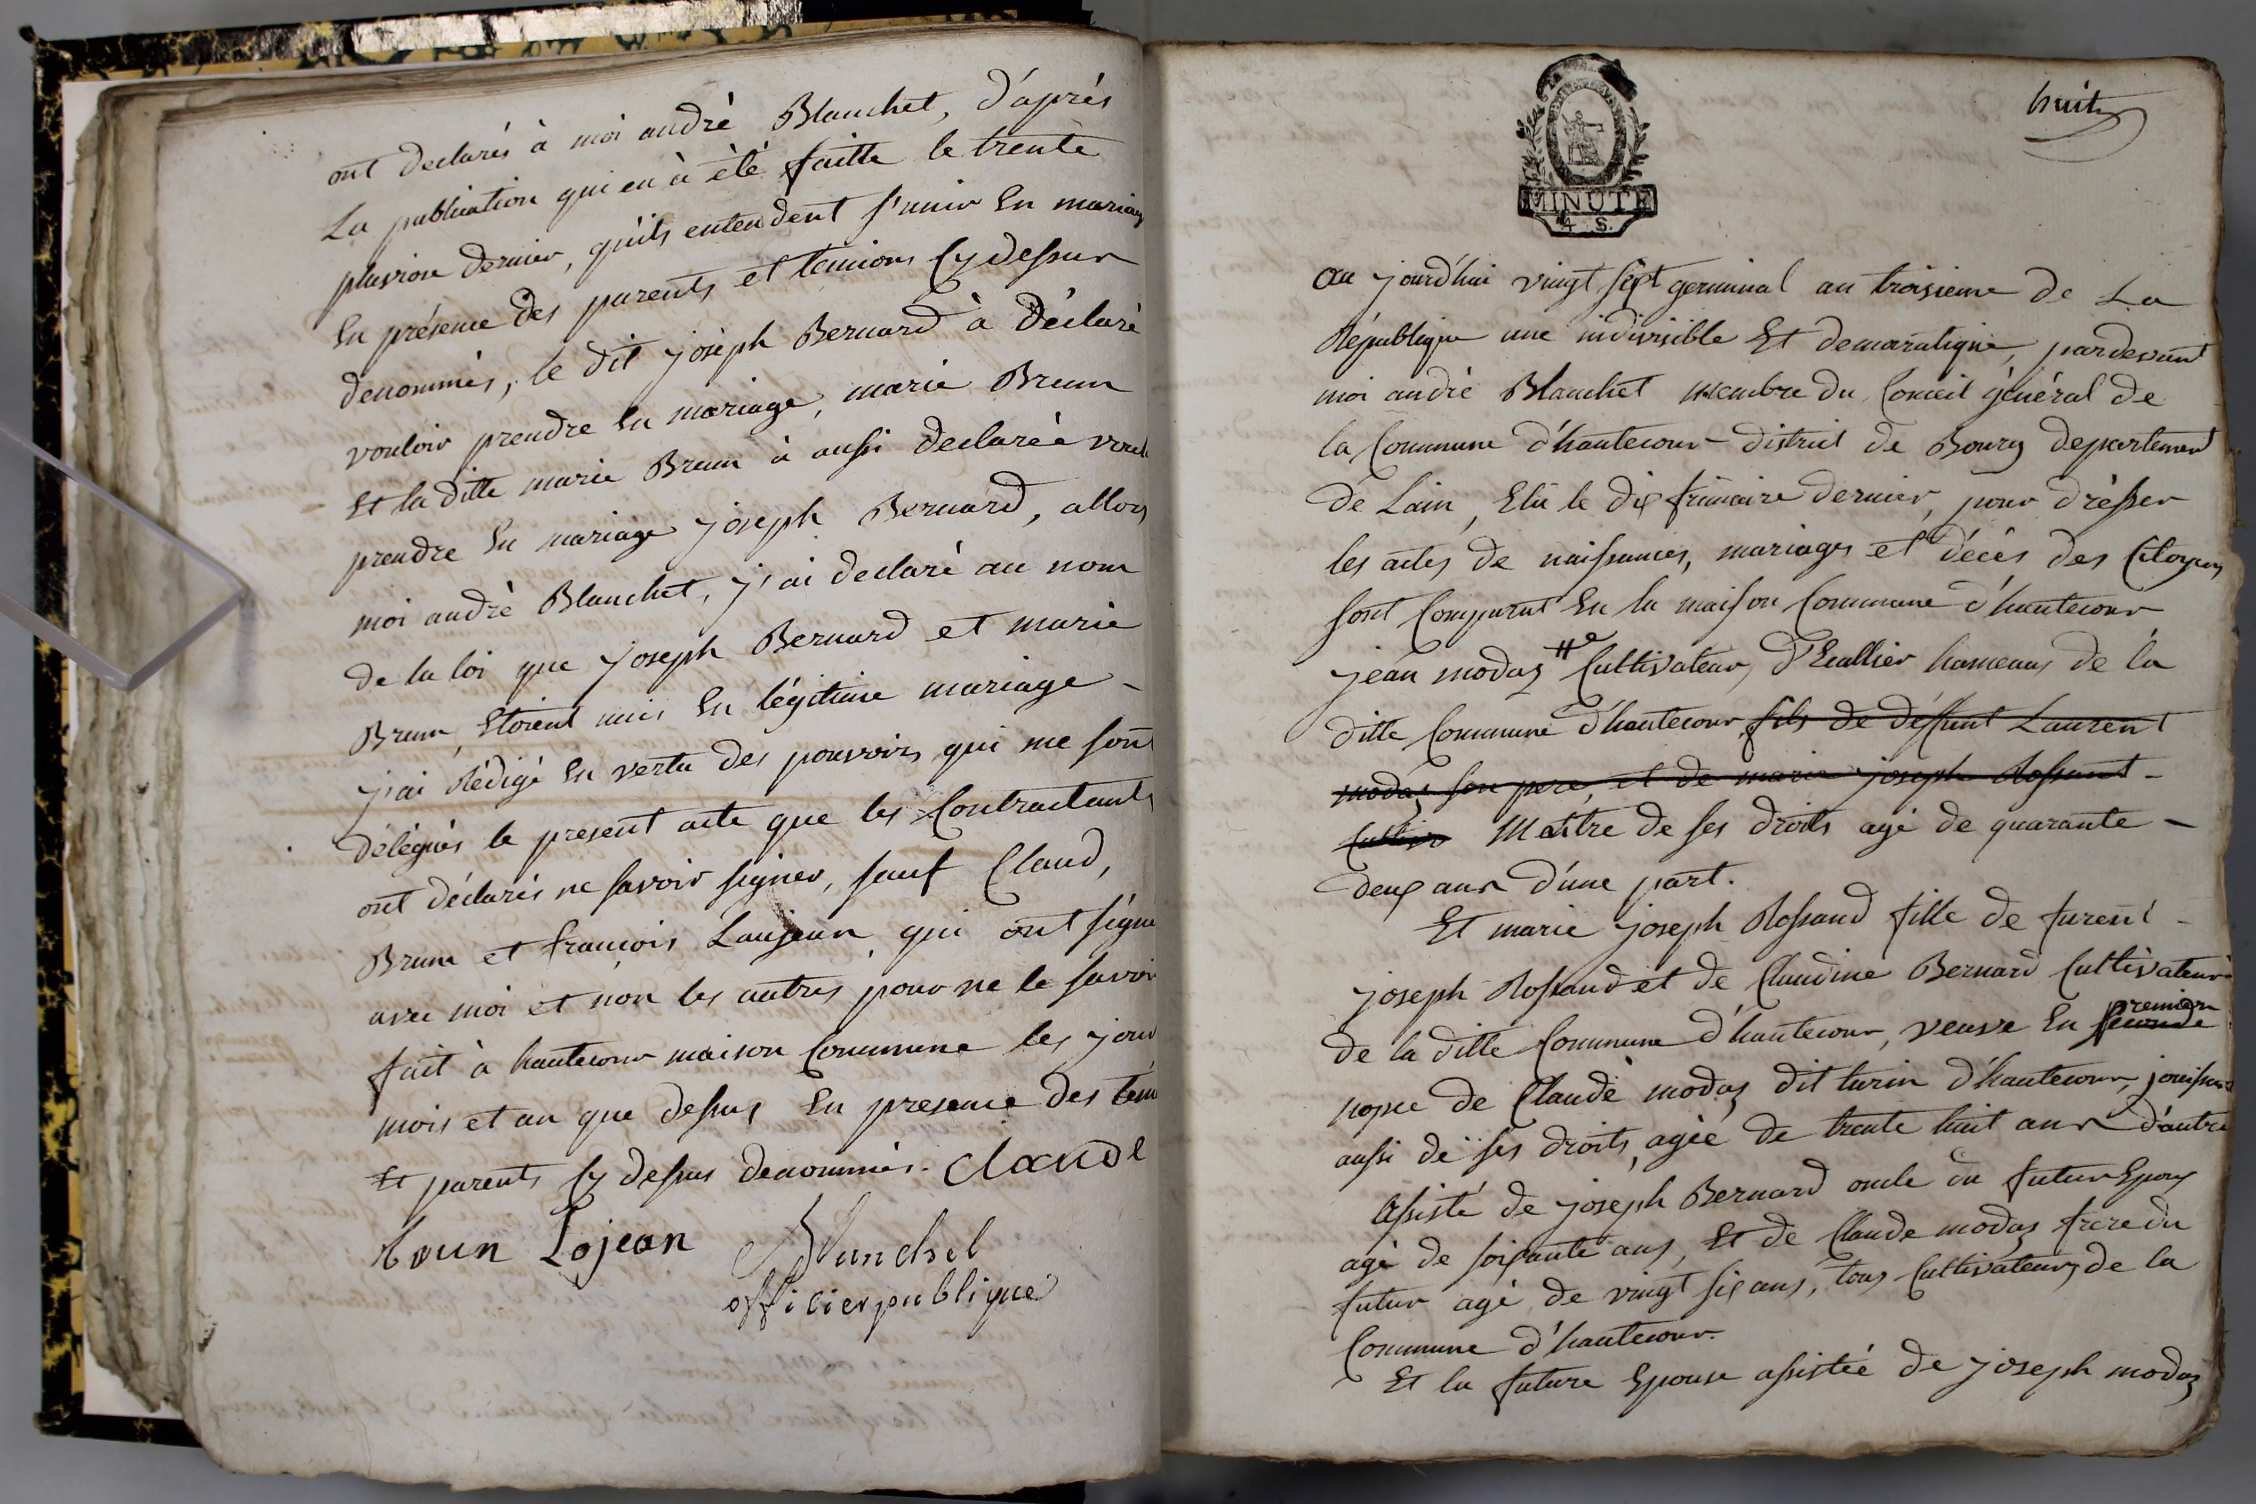 ont declarés à moi andré Blanchet, d'après
La publication qui en à été faitte le trente
pluviose dernier, qu'ils entendent s'unir En mariag
En présence des parents et témions Cy dessus
denommés, le dit joseph Bernard à déclaré
vouloir prendre En mariage, marie Brun
Et la ditte marie Brun à aussi declarée voul
prendre En mariage joseph Bernard, allors
moi andré Blanchet, j'ai declaré au nom
de la loi que joseph Bernard et marie
Brun, Etoient unis En légitime mariage -
j'ai Rédigé En vertu des pouvoirs qui me sont
délégués le present acte que les Contractants
ont déclarés ne savoir signer, sauf Claud,
Brun et françois Laujean qui ont signé
avec moi et non les autres pour ne le savoir
fait à hautecour maison Commune les jour
mois et an que dessus En presence des tém
Et parents Cy dessus denommés. Claude
broun Lojean Blanchet
officier publique
huit
MINUTE
4 S.
Au jourd'hui vingt sept germinal an troisieme de La
République une indivisible Et democratique, pardevant
moi andré Blanchet membre du Conseil général de
la Commune d'hautecour district de Bourg departement
de Lain, Elu le dix frimaire dernier, pour drésser
les actes de naissances, mariages et décés des Citoyens
sont Comparut En la maison Commune d'hautecour
jean modas # Cultivateur, d'Evallier hameaux de la
ditte Commune d'hautecour fils de défunt Laurent
modas son pere, et de marie joseph Rossand -
Maître de ses droits agé de quarante -
deux ans d'une part.
Et marie joseph Rossand fille de furent -
joseph Rossand et de Claudine Bernard Cultivateurs
premiere
de la ditte Commune d'hautecour, veuve En seconde
nopce de Claude modas dit turin d'hautecour, jouissant
aussi de ses droits, agée de trente huit ans d'autre
Assisté de joseph Bernard oncle du futur Epoux
agé de soixante ans, Et de Claude modas frere du
futur agé de vingt six ans, tous Cultivateurs de la
Commune d'hautecour.
Et la future Epouse assistée de joseph modas